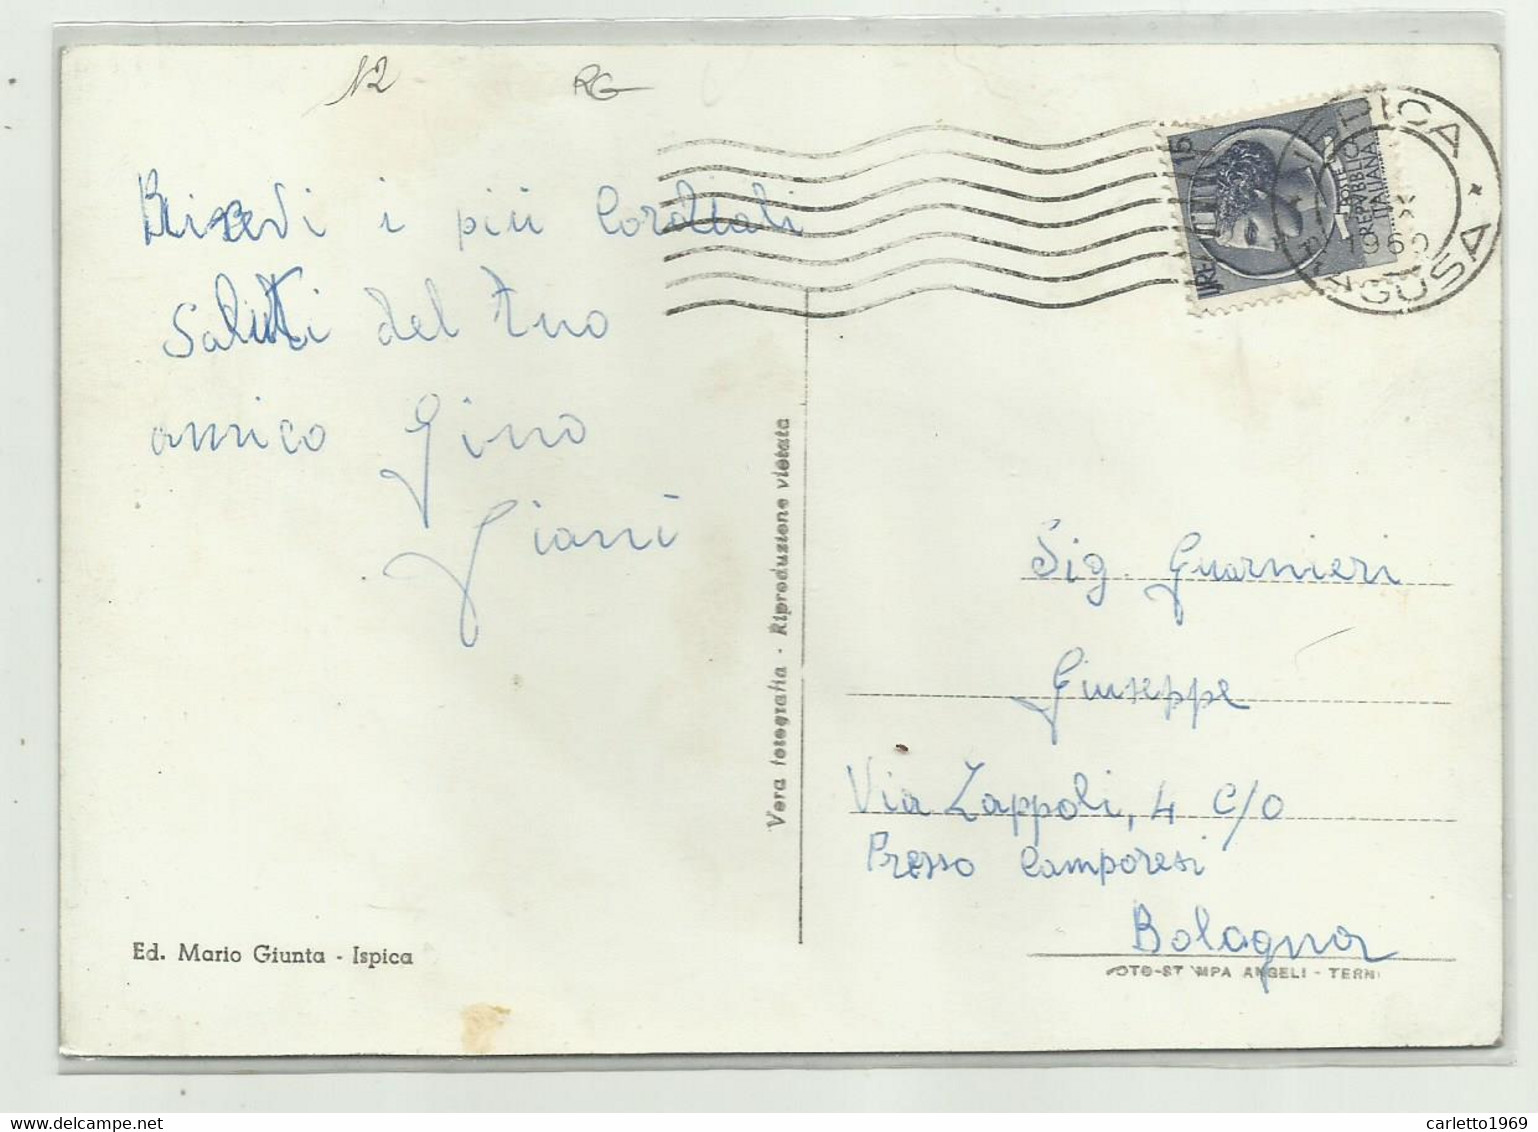 12 RG
Ricevi i più Cordiali
Saluti del tuo
amico Gino
Gianì
Ed. Mario Giunta - Ispica
Vera fotografia - Riproduzione vietata
LIRE 15
POSTE
REPVBBLICA
ITALIANA
ISPICA
196
GUSA *
Sig. Guarnieri
Giuseppe
Via Zappoli, 4 C/O
Presso Camporesi
Bologna
OTO-ST MPA ANGELI - TERNI
carletto1969